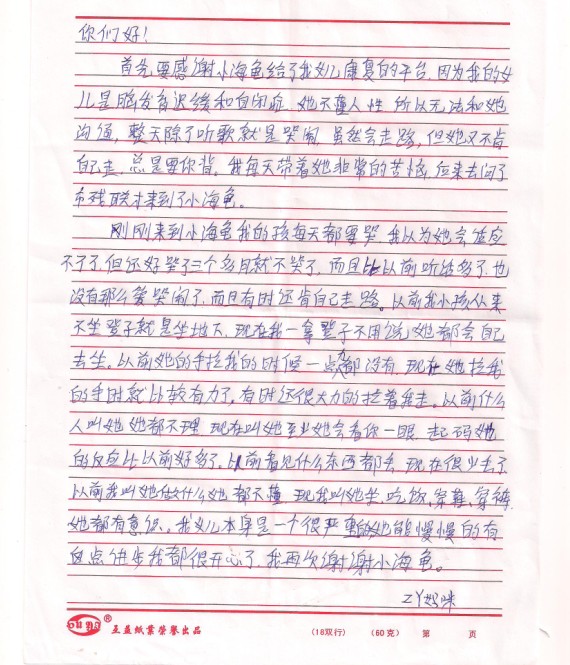 你们好!
首先要感谢小海龟给了我女儿康复的平台,因为我的女
儿是脑发育迟缓和自闭症,她不懂人性所以无法和她
沟通,整天除了听歌就是哭闹,虽然会走路,但她又不肯
自己走,总是要你背。我每天带着她非常的苦恼,后来去问了
市残联才来到了小海龟。
刚刚来到小海龟我的孩每天都要哭,我以为她会适应
不了了,但还好哭了三个多月就不哭了,而且比以前听话多了,也
没有那么爱哭闹了,而且有时还肯自己走路。以前我小孩从来
不坐凳子就是坐地下,现在我一拿凳子不用说她都会自己
去坐。以前她的手拉我的时候一点力都没有,现在她拉我
的手时就比较有力了,有时还很大力的拉着我走。以前什么
人叫她她都不理,现在叫她至少她会看你一眼,起码她
的反应比以前好多了,以前看见什么东西都丢,现在很少丢了
以前我叫她做什么她都不懂,现我叫她坐、吃饭、穿鞋、穿裤
她都有意识。我女儿本身是一个很严重的她能慢慢的有
点进步我都很开心了,我再次谢谢小海龟。
ZY妈咪
®
玉益纸业荣誉出品
(18双行)
(60克)
第 页